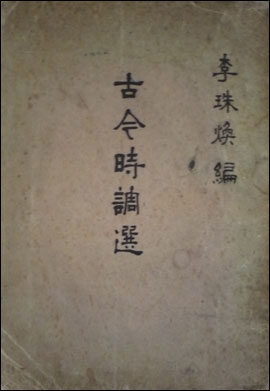 李珠煥編
古今時調選